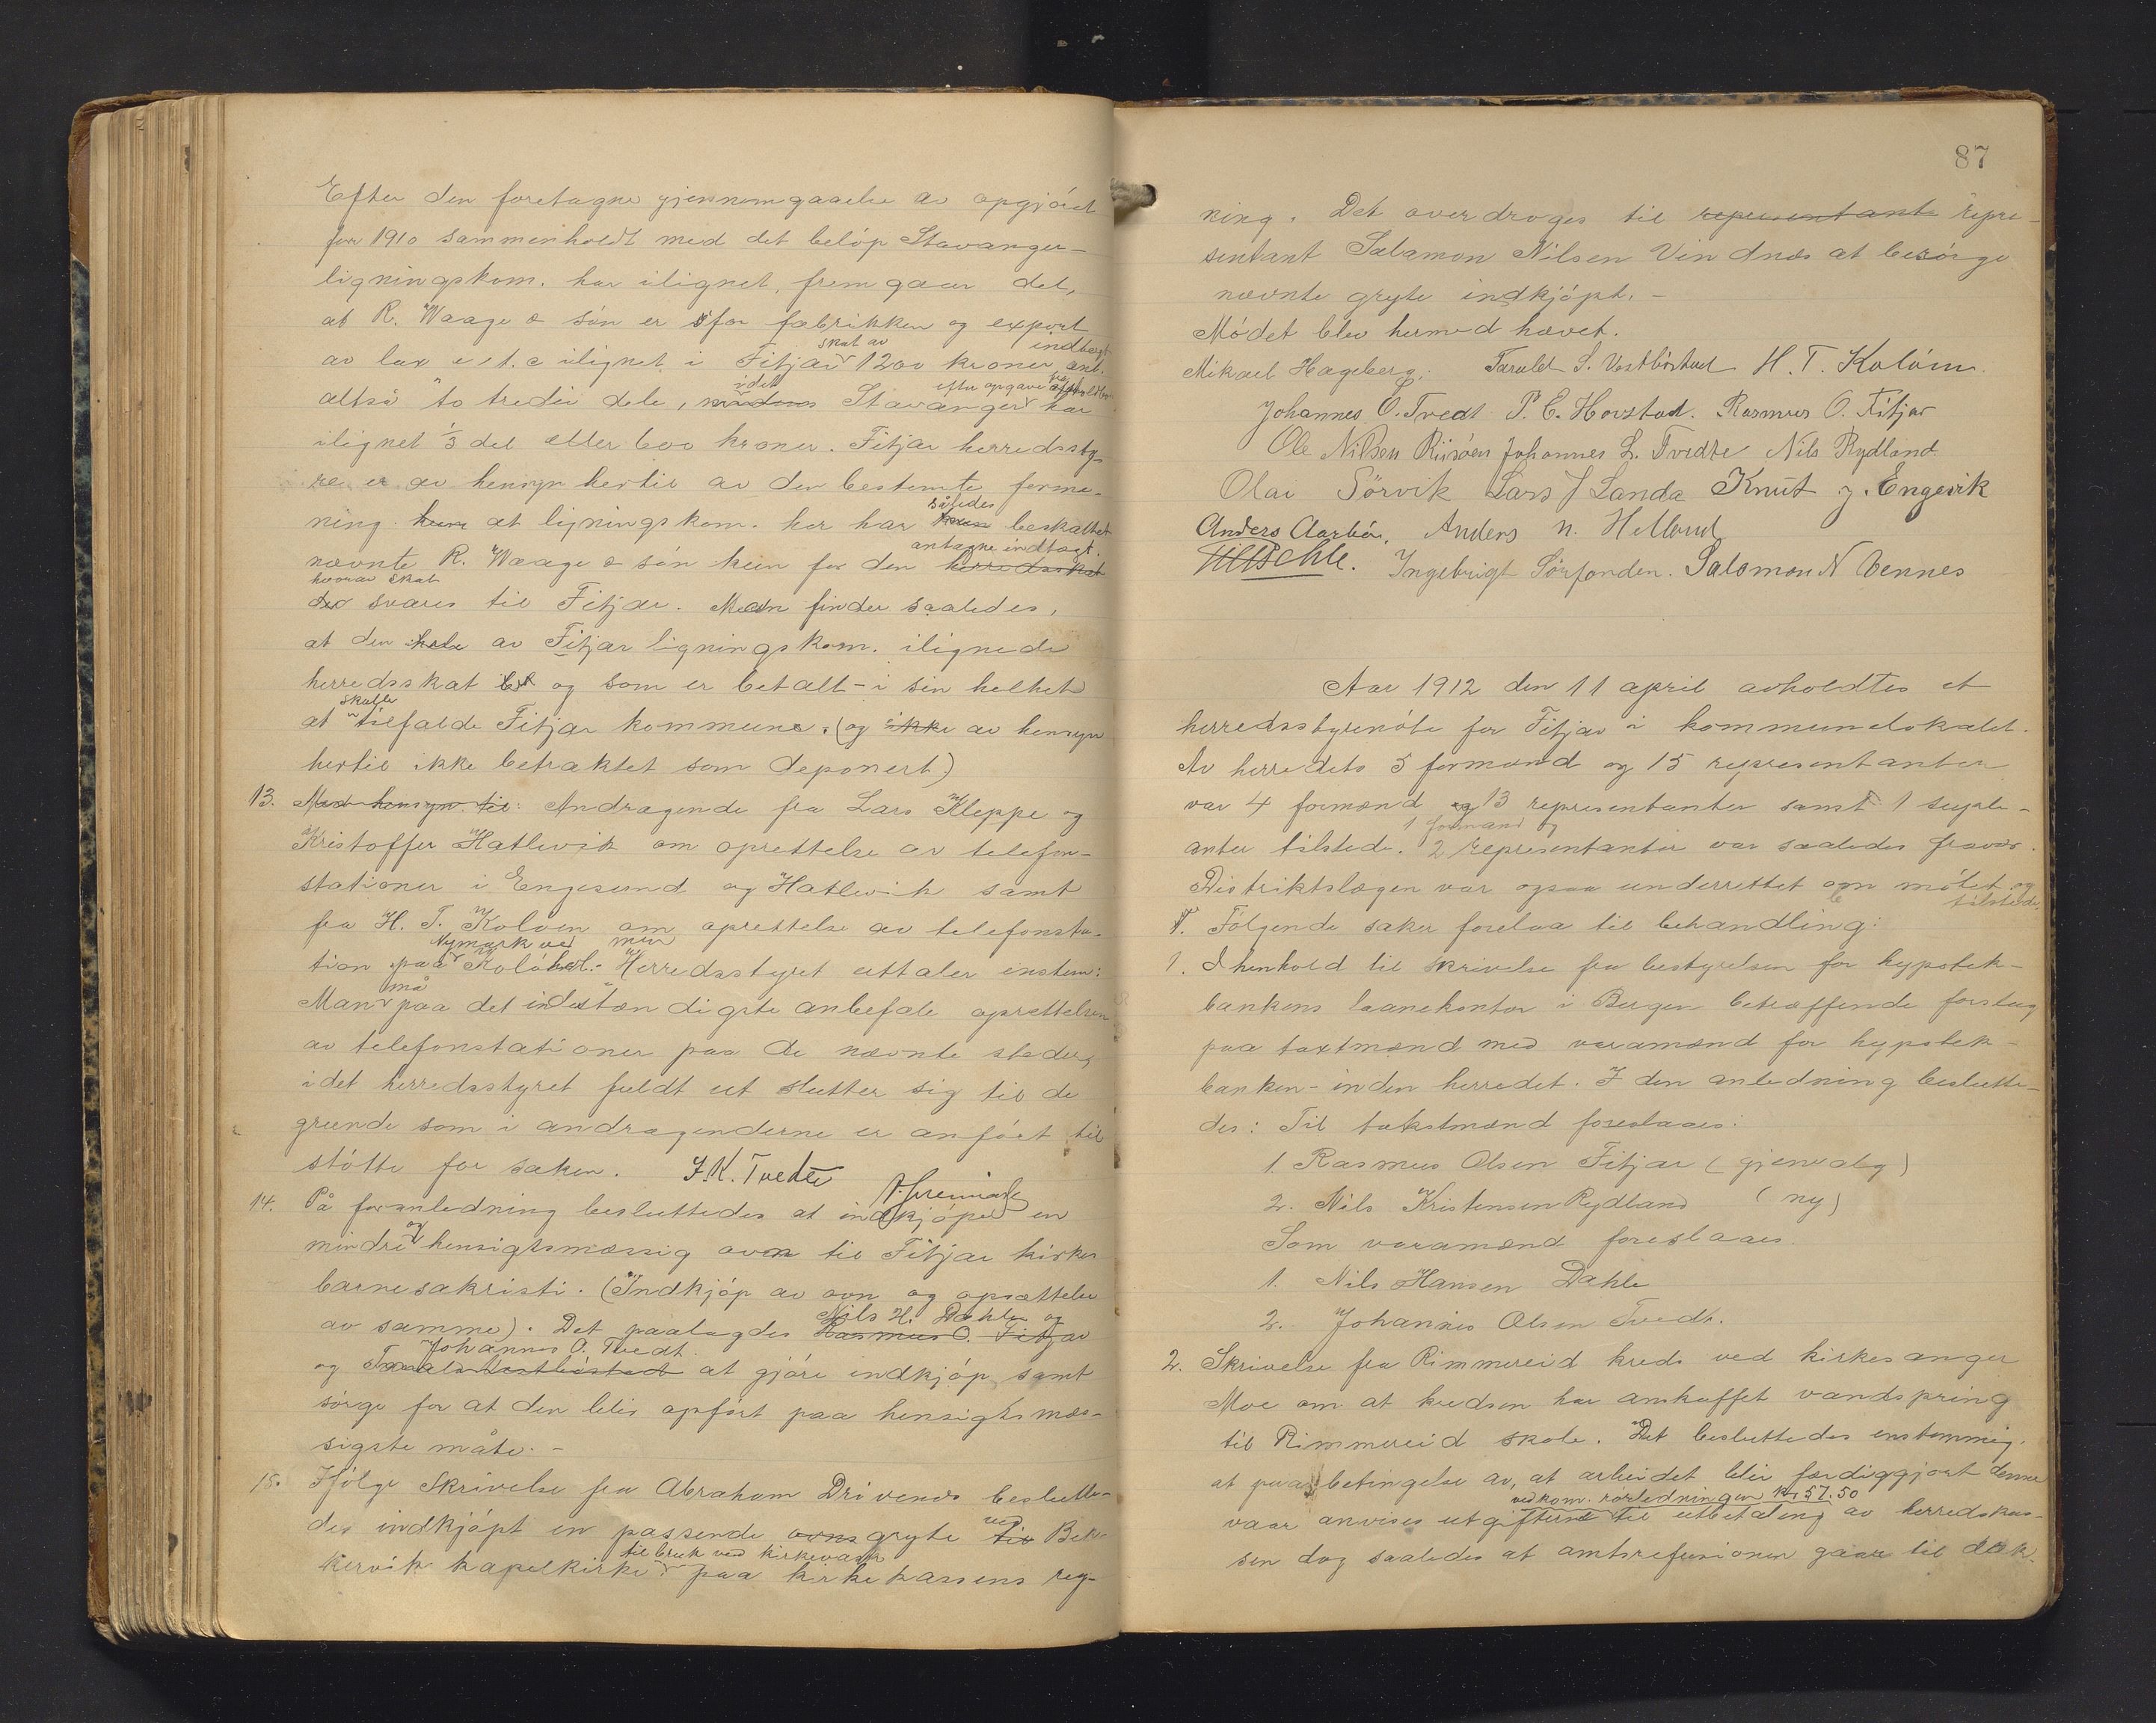 Efter den foretagne gjennemgaaelse av opgjöret
for 1910 sammenholdt med det belöp Stavanger-
ligningskom. har ilignet, fremgaar det,
at R. Waage & sön er for fabrikken og export
av lax e t. c ilignet i Fitjar skat av 1200 kroner indtægt
altså to tredie dele, idet Stavanger efter opgave har
ilignet 1/3 del eller 600 kroner. Fitjar herredssty-
re er av hensyn hertil av den bestemte forme-
ning at ligningskom. her har således beskattet
nævnte R. Waage & sön kun for den antagne indtægt.
hvorav skat svares til Fitjar. Man finder saaledes,
at den hele av Fitjar ligningskom. ilignede
herredsskat og som er betalt - i sin helhet
at skulle tilfalde Fitjar kommune. (og av hensyn
hertil ikke betraktet som deponert)
13. Med hensyn til: Andragende fra Lars Kleppe og
Kristoffer Hatlevik om oprettelse av telefon-
stationer i Engesund og Hatlevik samt
fra H. T. Kolöen om oprettelse av telefonsta-
tion paa Nymark ved Herredsstyret uttaler enstem:
Man må paa det indstændigste anbefale oprettelsen
av telefonstationer paa de nævnte steder,
idet herredsstyret fuldt ut slutter sig til de
grunde som i andragenderne er anfört til
stötte for saken. J. K. Tvedte
14. På foranledning besluttedes at indkjöpe en
mindre og hensigtsmæssig ovn til Fitjar kirkes
barnesakristi. (Indkjöp av ovn og opsættelse
av samme). Det paalagdes Nils H. Dahle og Rasmus O. Fitjar
og Johannes O. Tvedt at gjöre indkjöp samt
sörge for at den blir opfört paa hensigtsmæs-
sigste måte. -
15. Ifölge skrivelse fra Abraham Drivenes beslutte-
des indkjöpt en passende gryte ved Bek-
kervik kapelkirke til bruk ved kirkevask paa kirkekassens reg-
87
ning. Det overdroges til representant repre-
sentant Salamon Nilsen Vindnes at besörge
nævnte gryte indkjöpt. -
Mödet blev hermed hævet.
Mikael Hageberg. Tarald S. Vestböstad H. T. Kolöen
Johannes O. Tvedt P. C. Hovstad. Rasmus O. Fitjar
Ole Nilsen Riisöen Johannes L. Tvedte Nils Rydland
Olai Sörvik Lars J Landa Knut J. Engevik
Anders Aarbö. Anders N. Helland
Ingebrigt Sörfonden. Salomon N Vennes
Aar 1912 den 11 april avholdtes et
herredsstyremöte for Fitjar i kommunelokalet.
Av herredets 5 formænd og 15 representanter
var 4 formænd og 13 representanter samt 1 suple-
anter tilstede. 1 formand og 2 representanter var saaledes fravær.
Distriktslægen var ogsaa underrettet om mötet og tilstede.
Fölgende saker forelaa til behandling:
1. I henhold til skrivelse fra bestyrelsen for hypotek-
bankens laanekontor i Bergen betræffende forslag
paa taxtmænd med varamænd for hypotek-
banken - inden herredet. I den anledning beslutte-
des: Til takstmænd foreslaaes:
1. Rasmus Olsen Fitjar (gjenvalg)
2. Nils Kristensen Rydland (ny)
Som varamænd foreslaaes.
1. Nils Hansen Dahle
2. Johannes Olsen Tvedt.
2. Skrivelse fra Rimmereid kreds ved kirkesanger
Moe om at kredsen har anskaffet vandspring
til Rimmereid skole. Det besluttedes enstemmig.
at paa betingelse av, at arbeidet blir færdiggjort denne
vaar anvises utgifterne vedkom. rörledningen kr 57.50 til utbetaling av herredskas-
sen dog saaledes at amtsrefusionen gaar til dæk-